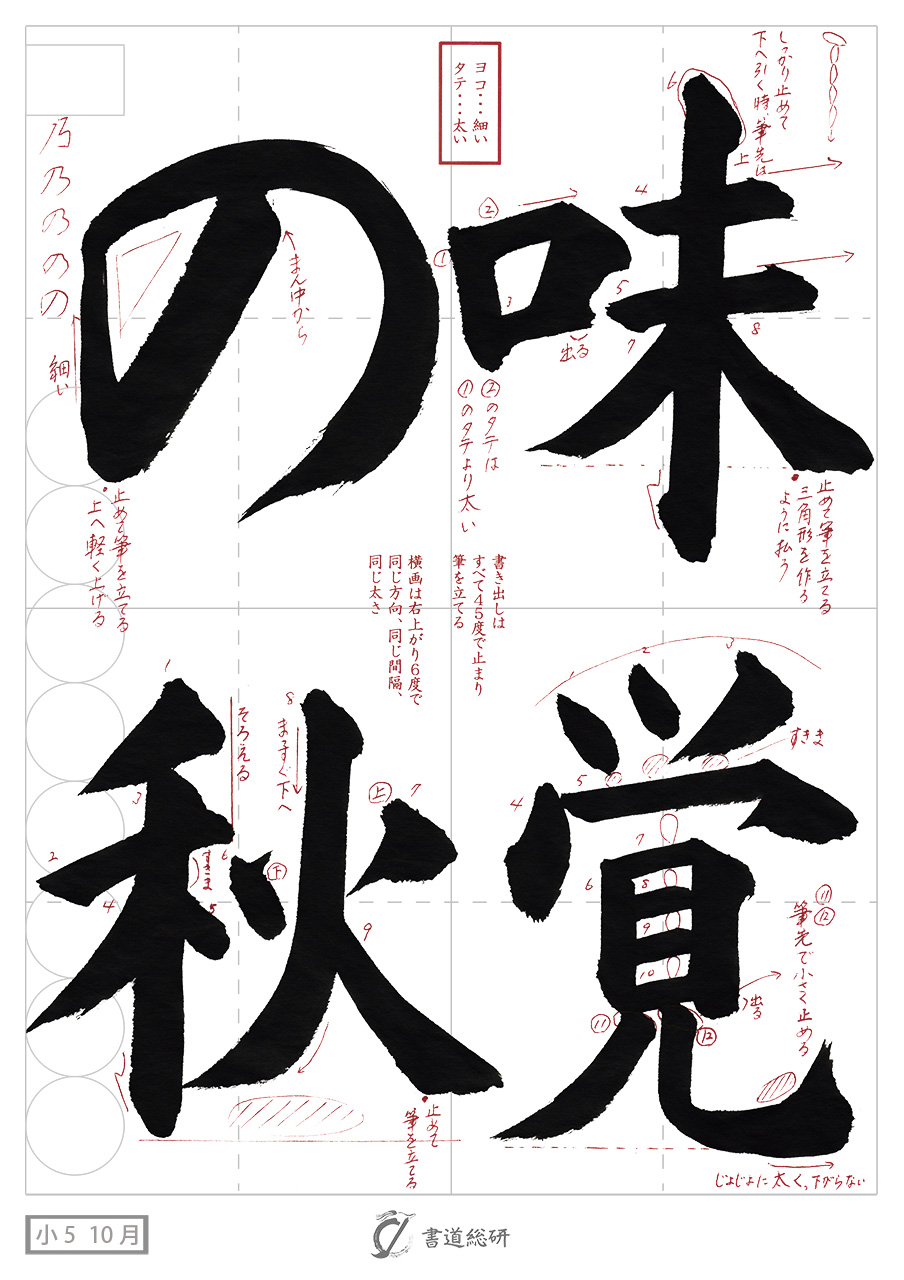 味覚
の秋
ヨコ・・・細い
タテ・・・太い
しっかり止めて
下へ引く時、筆先は
上
6
4
5
7
8
①
②
3
出る
②のタテは
①のタテより太い
止めて筆を立てる
三角形を作る
ように払う
乃
乃
の
の
の
細い
まん中から
止めて筆を立てる
上へ軽く上げる
書き出しは
すべて45度で止まり
筆を立てる
横画は右上がり6度で
同じ方向、同じ間隔、
同じ太さ
1
2
3
すきま
4
5
6
7
8
9
10
⑪
⑫
⑪
⑫
筆先で小さく止める
出る
じょじょに太く、下がらない
1
2
3
4
5
6
7
8
9
そろえる
まっすぐ下へ
すきま
上
下
止めて
筆を立てる
小5 10月
書道総研